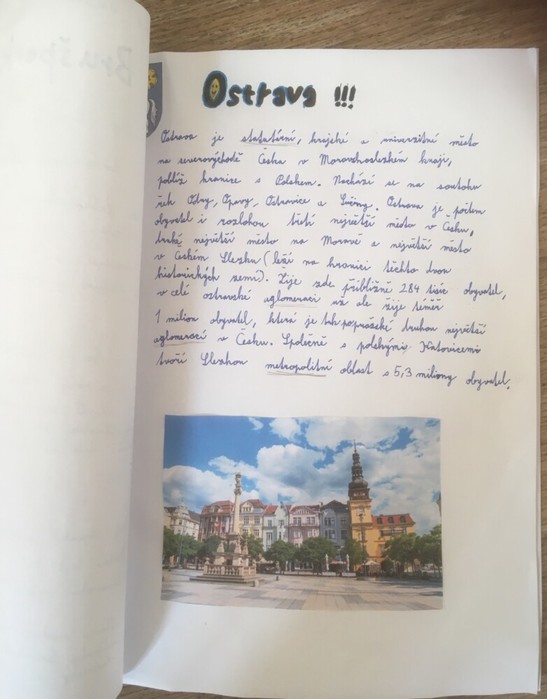 Ostrava !!!
Ostrava je statutární, krajské a univerzitní město
na severovýchodě Česka v Moravskoslezském kraji,
poblíž hranice s Polskem. Nachází se na soutoku
řek Odry, Opavy, Ostravice a Lučiny. Ostrava je počtem
obyvatel i rozlohou třetí největší město v Česku,
druhé největší město na Moravě a největší město
v Českém Slezsku (leží na hranici těchto dvou
historických zemí). Žije zde přibližně 284 tisíc obyvatel,
v celé ostravské aglomeraci už ale žije téměř
1 milion obyvatel, která je tak po pražské druhou největší
aglomerací v Česku. Společně s polskými Katovicemi
tvoří Slezkou metropolitní oblast s 5,3 miliony obyvatel.